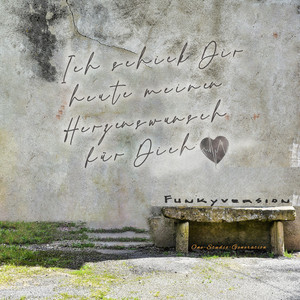 Ich schick Dir
heute meinen
Herzenswunsch
für Dich
FUNKYVERSION
One Studio Generation